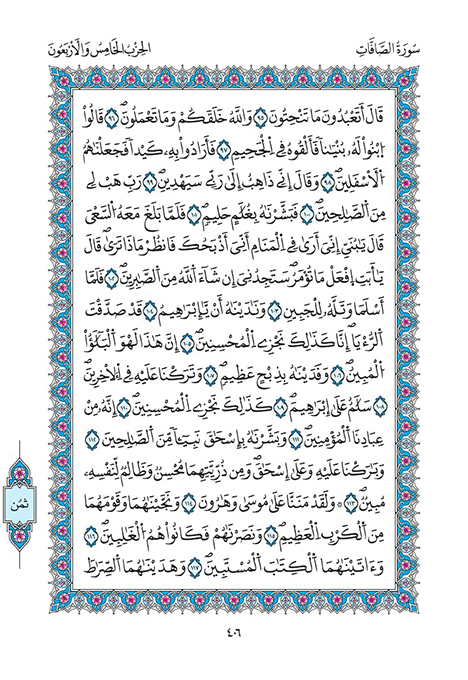 سُورَةُ الصَّافَّاتِ الحِزْبُ الخَامِسُ وَالْأَرْبَعُونَ
قَالَ أَتَعْبُدُونَ مَا تَنْحِتُونَۖ ٩٥ وَاللَّهُ خَلَقَكُمْ وَمَا تَعْمَلُونَۖ ٩٦ قَالُوا
ابْنُوا لَهُۥ بُنْيَٰنًا فَأَلْقُوهُ فِي الْجَحِيمِۖ ٩٧ فَأَرَادُوا بِهِۦ كَيْدًا فَجَعَلْنَٰهُمُ
الْأَسْفَلِينَۖ ٩٨ وَقَالَ إِنِّي ذَاهِبٌ إِلَىٰ رَبِّي سَيَهْدِينِۖ ٩٩ رَبِّ هَبْ لِي
مِنَ الصَّٰلِحِينَۖ ١٠٠ فَبَشَّرْنَٰهُ بِغُلَٰمٍ حَلِيمٍۖ ١٠١ فَلَمَّا بَلَغَ مَعَهُ السَّعْيَ
قَالَ يَٰبُنَيِّ إِنِّيَ أَرَىٰ فِي الْمَنَامِ أَنِّيَ أَذْبَحُكَ فَانظُرْ مَاذَا تَرَىٰۖ قَالَ
يَٰأَبَتِ افْعَلْ مَا تُؤْمَرُۖ سَتَجِدُنِيَ إِن شَآءَ اللَّهُ مِنَ الصَّٰبِرِينَۖ ١٠٢ فَلَمَّا
أَسْلَمَا وَتَلَّهُۥ لِلْجَبِينِ ١٠٣ وَنَٰدَيْنَٰهُ أَنْ يَّٰإِبْرَٰهِيمُ ١٠٤ قَدْ صَدَّقْتَ
الرُّءْيَاۖ إِنَّا كَذَٰلِكَ نَجْزِي الْمُحْسِنِينَۖ ١٠٥ إِنَّ هَٰذَا لَهُوَ الْبَلَٰٓؤُا
الْمُبِينُۖ ١٠٦ وَفَدَيْنَٰهُ بِذِبْحٍ عَظِيمٍۖ ١٠٧ وَتَرَكْنَا عَلَيْهِ فِي الْأَخِرِينَۖ
١٠٨ سَلَٰمٌ عَلَىٰ إِبْرَٰهِيمَۖ ١٠٩ كَذَٰلِكَ نَجْزِي الْمُحْسِنِينَۖ ١١٠ إِنَّهُۥ مِنْ
عِبَادِنَا الْمُؤْمِنِينَۖ ١١١ وَبَشَّرْنَٰهُ بِإِسْحَٰقَ نَبِيٓـًٔا مِّنَ الصَّٰلِحِينَۖ ١١٢
وَبَٰرَكْنَا عَلَيْهِ وَعَلَىٰ إِسْحَٰقَۖ وَمِن ذُرِّيَّتِهِمَا مُحْسِنٌ وَظَالِمٌ لِّنَفْسِهِۦ
مُبِينٌۖ ١١٣ وَلَقَدْ مَنَنَّا عَلَىٰ مُوسَىٰ وَهَٰرُونَۖ ١١٤ وَنَجَّيْنَٰهُمَا وَقَوْمَهُمَا
مِنَ الْكَرْبِ الْعَظِيمِۖ ١١٥ وَنَصَرْنَٰهُمْ فَكَانُوا هُمُ الْغَٰلِبِينَۖ ١١٦
وَءَاتَيْنَٰهُمَا الْكِتَٰبَ الْمُسْتَبِينَۖ ١١٧ وَهَدَيْنَٰهُمَا الصِّرَٰطَ
ثُمُن
٤٠٦